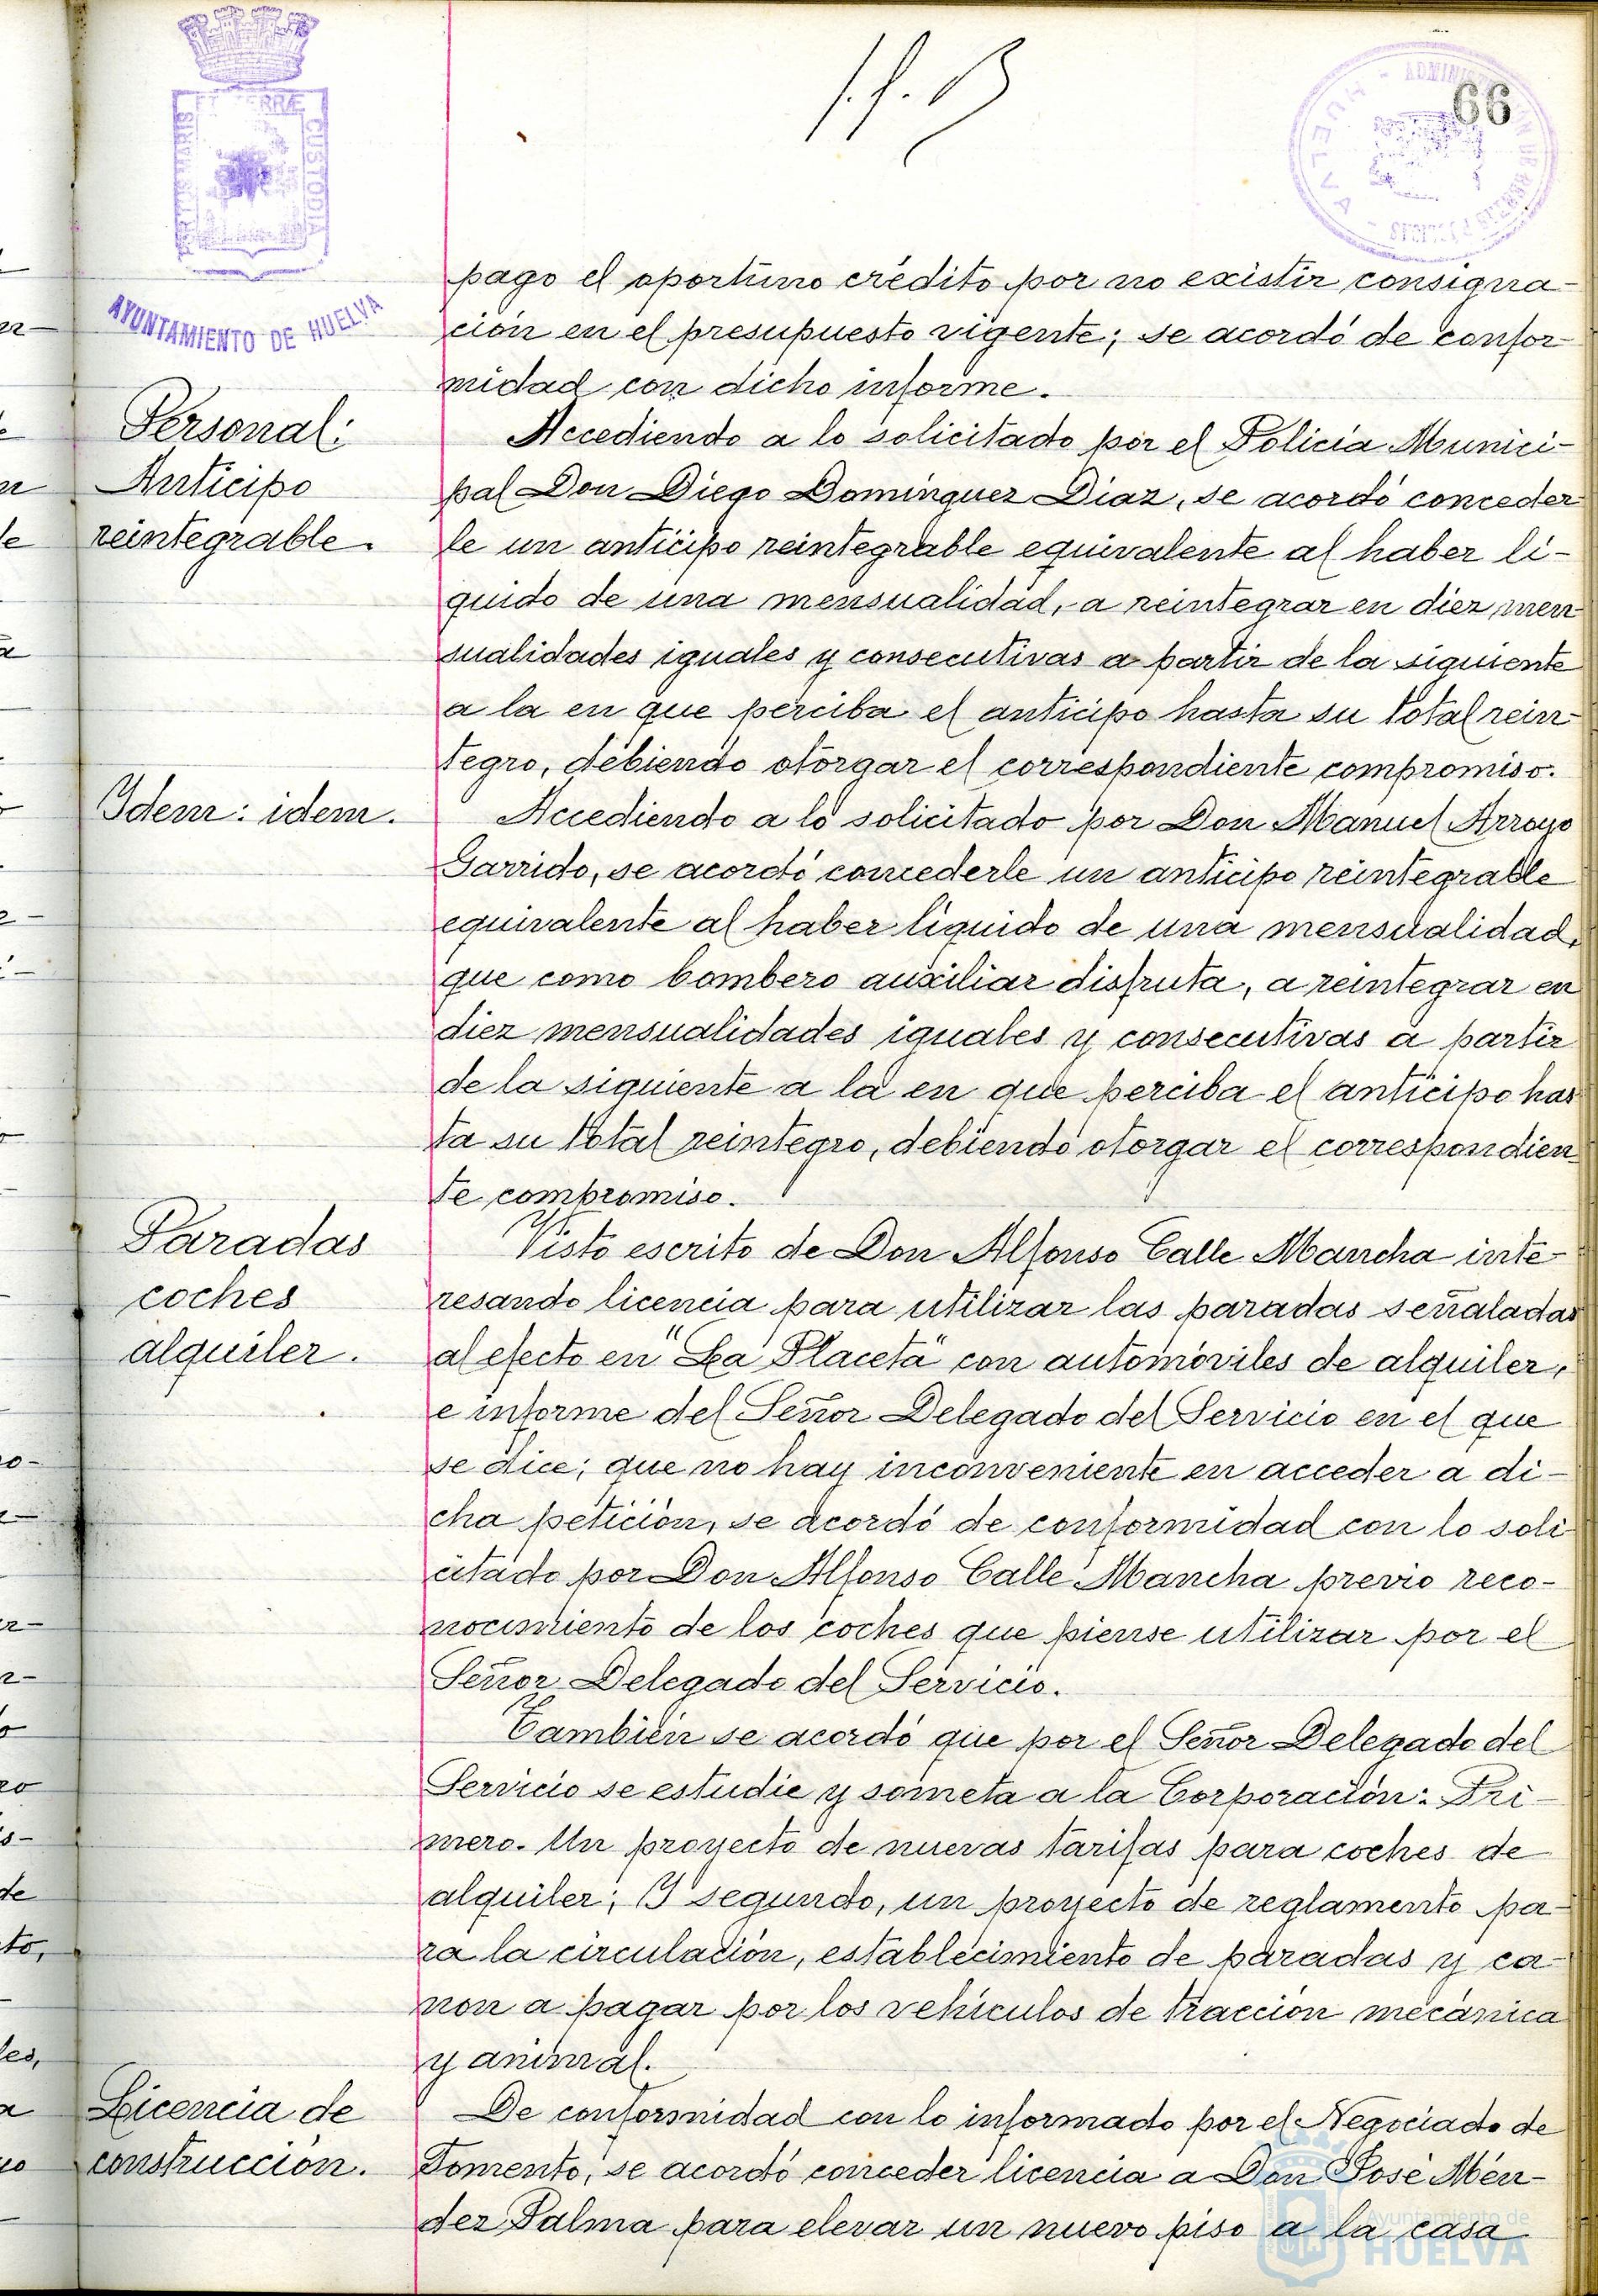 66
PORTUS MARIS ET TERRÆ CUSTODIA
AYUNTAMIENTO DE HUELVA
pago el oportuno crédito por no existir consigna-
ción en el presupuesto vigente; se acordó de confor-
midad con dicho informe.
Personal:
Anticipo
reintegrable.
Accediendo a lo solicitado por el Policía Munici-
pal Don Diego Dominguez Diaz, se acordó conceder
le un anticipo reintegrable equivalente al haber lí-
quido de una mensualidad, a reintegrar en diez men
sualidades iguales y consecutivas a partir de la siguiente
a la en que perciba el anticipo hasta su total rein-
tegro, debiendo otorgar el correspondiente compromiso.
Idem: idem.
Accediendo a lo solicitado por Don Manuel Arroyo
Garrido, se acordó concederle un anticipo reintegrable
equivalente al haber líquido de una mensualidad,
que como bombero auxiliar disfruta, a reintegrar en
diez mensualidades iguales y consecutivas a partir
de la siguiente a la en que perciba el anticipo has
ta su total reintegro, debiendo otorgar el correspondien
te compromiso.
Paradas
coches
alquiler.
Visto escrito de Don Alfonso Calle Mancha inte-
resando licencia para utilizar las paradas señaladas
al efecto en "La Placeta" con automóviles de alquiler,
e informe del Señor Delegado del Servicio en el que
se dice; que no hay inconveniente en acceder a di-
cha petición, se acordó de conformidad con lo soli
citado por Don Alfonso Calle Mancha previo reco-
nocimiento de los coches que piense utilizar por el
Señor Delegado del Servicio.
También se acordó que por el Señor Delegado del
Servicio se estudie y someta a la Corporación: Pri-
mero. Un proyecto de nuevas tarifas para coches de
alquiler; Y segundo, un proyecto de reglamento pa-
ra la circulación, establecimiento de paradas y ca-
non a pagar por los vehículos de tracción mecánica
y animal.
Licencia de
construcción.
De conformidad con lo informado por el Negociado de
Fomento, se acordó conceder licencia a Don José Mén-
dez Palma para elevar un nuevo piso a la casa
Ayuntamiento de
HUELVA